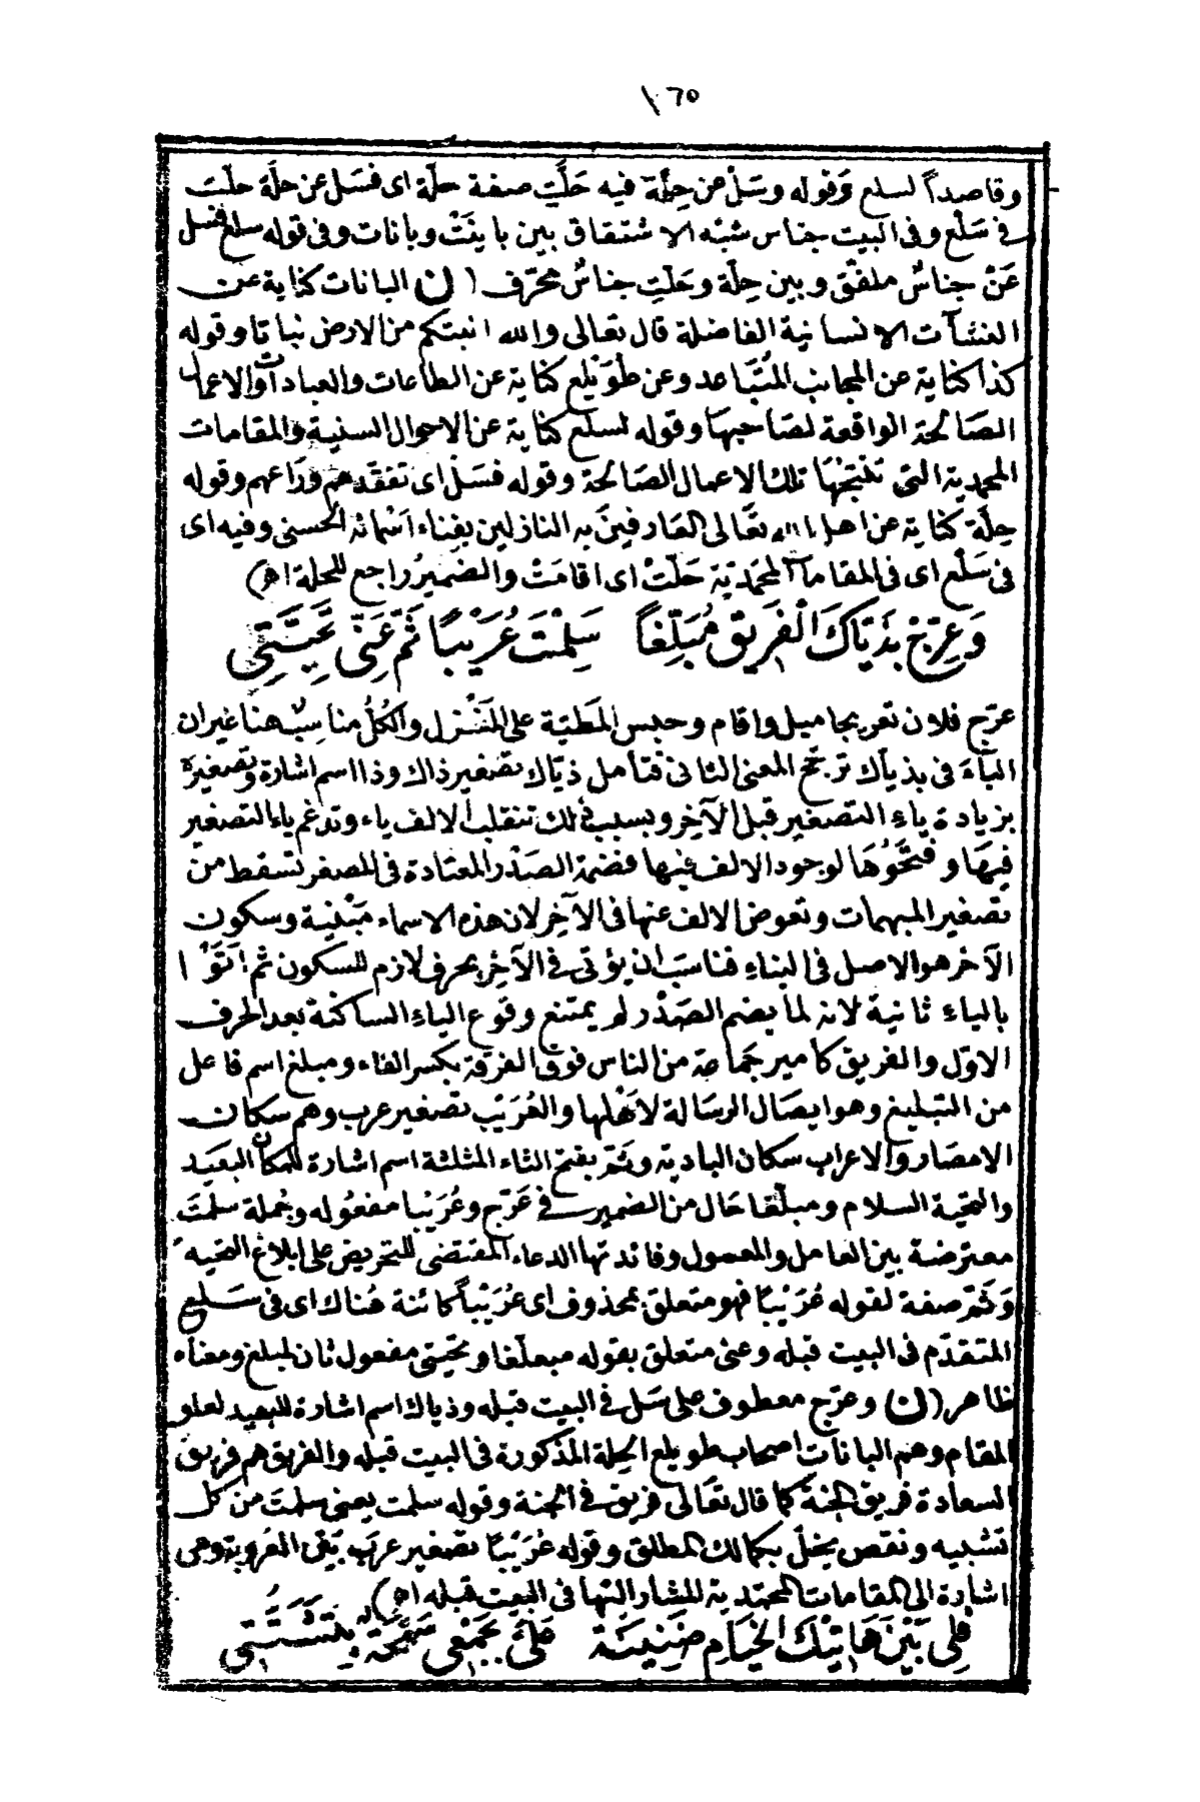 ١٦٥
وقاصداً لسلع وقوله وسَلْ عن حِلَّة فيه حَلَّتِ صفة حلّة اى فسَل عن حلَّة حلّت
فى سَلْع وفى البيت جناس شبْه الاشتقاق بين باينَتْ وبانات وفى قوله سلع فسل
عَنْ جناسٌ ملفّق وبين حِلّة وحَلّتِ جناسٌ محرّف (ن) البانات كناية عن
النشآت الانسانية الفاضلة قال تعالى والله انبتكم من الارض نباتا وقوله
كذا كناية عن المجانب المُتَباعد وعن طوَيْلع كناية عن الطاعات والعبادات والاعمال
الصَالحة الواقعة لصَاحبهَا وقوله لسلع كناية عن الاحوال السنية والمقامات
المحمدية التى تنتجهَا تلك الاعمال الصَالحة وقوله فسَلْ اى تفقدهم وراعهم وقوله
حِلّة كناية عن اهل الله تعَالى العَارفينَ به النازلين بفِناء اسْمائه الحسنى وفيه اى
فى سَلْع اى فى المقامات المحمّدية حَلّتْ اى اقامَتْ والضميرُ راجع للحلة اهـ)
وَعرّجْ بذَيّاكَ الْفَرِيقِ مُبَلّغاً سَلِمْتَ عُرَيْبًا ثَمّ عَنّى تَحِيَّتِى
عرّج فلان تعريجا ميل واقام وحبس المَطيّة على المَنْزل والكُلُّ مناسِبٌ هنا غير ان
البَاءَ فى بذيّاك ترجّح المعنى الثانى فتأمل ذيّاك تصغير ذاك وذا اسم اشارة وتصغيره
بزيادة ياءِ التصغير قبل الآخِر وبسبب ذلك تنقلب الالف ياء وتدغم ياء التصغير
فيهَا وفتحُوهَا لوجود الالف فضمة الصَدْر المعتادة فى المصغر تسقط من
تصغير المبهمات وتعوض الالف عنها فى الآخِر لان هذه الاسماء مَبْنية وسكون
الآخر هو الاصل فى البناءِ فناسَبَ ان يؤتى فى الآخِرِ بحرف لازم للسكون ثم أتَوْا
بالياءِ ثانية لانه لما يضم الصَدْر لم يمتنع وقوع الياءِ الساكنة بعد الحرف
الاوّل والفريق كامير جَماعة من الناس فوق الفرقة بكسر الفاء ومبلغ اسم فاعل
من التبليغ وهو ايصَال الرسَالة لاَهْلها والعُرَيْب تصغير عرب وهم سكان
الامصار والاعراب سكان البادية وثمّ بفتح الثاء المثلثة اسم اشارة للمكان البعَيد
والتحيّة السلام ومبلّغا حَال من الضمير فى عَرّج وعُرَيْبا مفعُوله وجُملة سلمتَ
معترضة بين العامل والمعمول وفائدتها الدعاء المقتضى للتحريض على ابلاغ التحية
وَثمّ صفة لقوله عُرَيْبًا فهو متعلق بمحذوف اى عُرَيْباً كائنة هُناك اى فى سَلع
المتقدّم فى البيت قبله وعنى متعلق بقوله مبلّغا وتحيّتى مفعول ثان لمبلغ ومعناه
ظاهر (ن) وعرّج معطوف على سَل فى البيت قبله وذياك اسم اشارة للبعيد لعلو
المقام وهم البانات اصحاب طويلع الحِلة المذكورة فى البيت قبله والفريق هم فريق
السعادة فريق الجنة كما قال تعَالى فريق فى الجنة وقوله سلمت يعنى سلمتَ من كل
تشبيه ونقص يخلّ بكمالك المطلق وقوله عُرَيْبًا تصغير عرب بَقى العُروبة وهى
اشارة الى المقامات المحمّدية المشار اليْها فى البيت قبله اهـ)
فلِى بَيْنَ هَاتِيْكَ الخِيَامِ ضَنِيَنَة عَلَىّ بجَمْعِى سَمْحَة بِتَشَتُّتِى